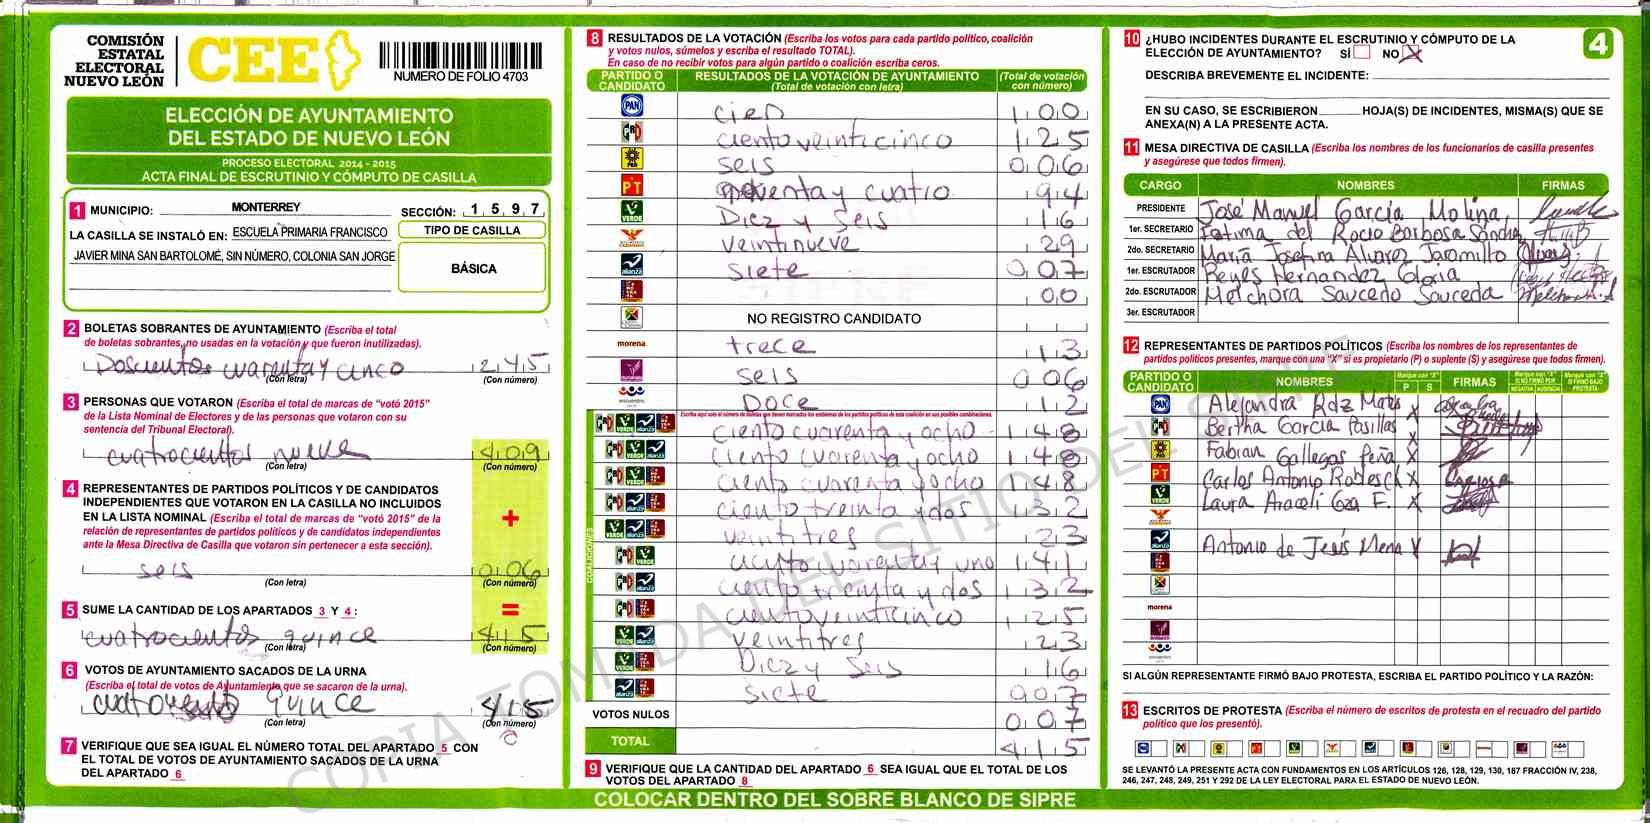 COMISIÓN
ESTATAL
ELECTORAL
NUEVO LEÓN
CEE
NUMERO DE FOLIO 4703
ELECCIÓN DE AYUNTAMIENTO
DEL ESTADO DE NUEVO LEÓN
PROCESO ELECTORAL 2014 - 2015
ACTA FINAL DE ESCRUTINIO Y CÓMPUTO DE CASILLA
1 MUNICIPIO: MONTERREY SECCIÓN: 1 5 9 7
LA CASILLA SE INSTALÓ EN: ESCUELA PRIMARIA FRANCISCO
JAVIER MINA SAN BARTOLOMÉ, SIN NÚMERO, COLONIA SAN JORGE
TIPO DE CASILLA
BÁSICA
2 BOLETAS SOBRANTES DE AYUNTAMIENTO (Escriba el total
de boletas sobrantes, no usadas en la votación y que fueron inutilizadas).
Doscientos cuarenta y cinco 245
(Con letra) (Con número)
3 PERSONAS QUE VOTARON (Escriba el total de marcas de "votó 2015"
de la Lista Nominal de Electores y de las personas que votaron con su
sentencia del Tribunal Electoral).
cuatrocientos nueve 409
(Con letra) (Con número)
4 REPRESENTANTES DE PARTIDOS POLÍTICOS Y DE CANDIDATOS
INDEPENDIENTES QUE VOTARON EN LA CASILLA NO INCLUIDOS
EN LA LISTA NOMINAL (Escriba el total de marcas de "votó 2015" de la
relación de representantes de partidos políticos y de candidatos independientes
ante la Mesa Directiva de Casilla que votaron sin pertenecer a esta sección).
+
seis 006
(Con letra) (Con número)
5 SUME LA CANTIDAD DE LOS APARTADOS 3 Y 4 : =
cuatrocientos quince 415
(Con letra) (Con número)
6 VOTOS DE AYUNTAMIENTO SACADOS DE LA URNA
(Escriba el total de votos de Ayuntamiento que se sacaron de la urna).
quince 415
(Con letra) (Con número)
7 VERIFIQUE QUE SEA IGUAL EL NÚMERO TOTAL DEL APARTADO 5 CON
EL TOTAL DE VOTOS DE AYUNTAMIENTO SACADOS DE LA URNA
DEL APARTADO 6
8 RESULTADOS DE LA VOTACIÓN (Escriba los votos para cada partido político, coalición
y votos nulos, súmelos y escriba el resultado TOTAL).
En caso de no recibir votos para algún partido o coalición escriba ceros.
PARTIDO O CANDIDATO RESULTADOS DE LA VOTACIÓN DE AYUNTAMIENTO (Total de votación con letra) (Total de votación con número)
PAN cien 100
PRI ciento veinticinco 125
PRD seis 006
PT noventa y cuatro 94
VERDE Diez y seis 16
veintinueve 29
alianza siete 007
00
NO REGISTRO CANDIDATO
morena trece 13
seis 006
encuentro Doce 12
Escriba aquí solo el número de boletas que tienen marcados los emblemas de los partidos políticos de esta coalición en sus posibles combinaciones.
COALICIONES
ciento cuarenta y ocho 148
ciento cuarenta y ocho 148
ciento cuarenta y ocho 148
ciento treinta y dos 132
veintitres 23
ciento cuarenta y uno 141
ciento treinta y dos 132
ciento veinticinco 125
veintitres 23
Diez y seis 16
siete 007
VOTOS NULOS 007
TOTAL 415
9 VERIFIQUE QUE LA CANTIDAD DEL APARTADO 6 SEA IGUAL QUE EL TOTAL DE LOS
VOTOS DEL APARTADO 8
COLOCAR DENTRO DEL SOBRE BLANCO DE SIPRE
4
10 ¿HUBO INCIDENTES DURANTE EL ESCRUTINIO Y CÓMPUTO DE LA
ELECCIÓN DE AYUNTAMIENTO? SÍ NO X
DESCRIBA BREVEMENTE EL INCIDENTE:
EN SU CASO, SE ESCRIBIERON HOJA(S) DE INCIDENTES, MISMA(S) QUE SE
ANEXA(N) A LA PRESENTE ACTA.
11 MESA DIRECTIVA DE CASILLA (Escriba los nombres de los funcionarios de casilla presentes
y asegúrese que todos firmen).
CARGO NOMBRES FIRMAS
PRESIDENTE José Manuel García Molina
1er. SECRETARIO Fatima del Rocio Barbosa Sánchez
2do. SECRETARIO María Josefina Alvarez Jaramillo
1er. ESCRUTADOR Reyes Hernandez Gloria
2do. ESCRUTADOR Melchora Saucedo Sauceda
3er. ESCRUTADOR
12 REPRESENTANTES DE PARTIDOS POLÍTICOS (Escriba los nombres de los representantes de
partidos políticos presentes, marque con una "X" si es propietario (P) o suplente (S) y asegúrese que todos firmen).
PARTIDO O CANDIDATO NOMBRES Marque con "X" P S FIRMAS Marque con "X" SI NO FIRMÓ POR NEGATIVA AUSENCIA Marque con "X" SI FIRMÓ BAJO PROTESTA
PAN Alejandra Rdz Mata X
PRI Bertha García Pasillas X
PRD Fabian Gallegos Peña X
PT Carlos Antonio X
VERDE Laura Araceli Gza F. X
alianza Antonio de Jesús Mena X
morena
encuentro
SI ALGÚN REPRESENTANTE FIRMÓ BAJO PROTESTA, ESCRIBA EL PARTIDO POLÍTICO Y LA RAZÓN:
13 ESCRITOS DE PROTESTA (Escriba el número de escritos de protesta en el recuadro del partido
político que los presentó).
SE LEVANTÓ LA PRESENTE ACTA CON FUNDAMENTOS EN LOS ARTÍCULOS 126, 128, 129, 130, 187 FRACCIÓN IV, 238,
246, 247, 248, 249, 251 Y 292 DE LA LEY ELECTORAL PARA EL ESTADO DE NUEVO LEÓN.
COPIA TOMADA DEL SITIO DEL SIPRE